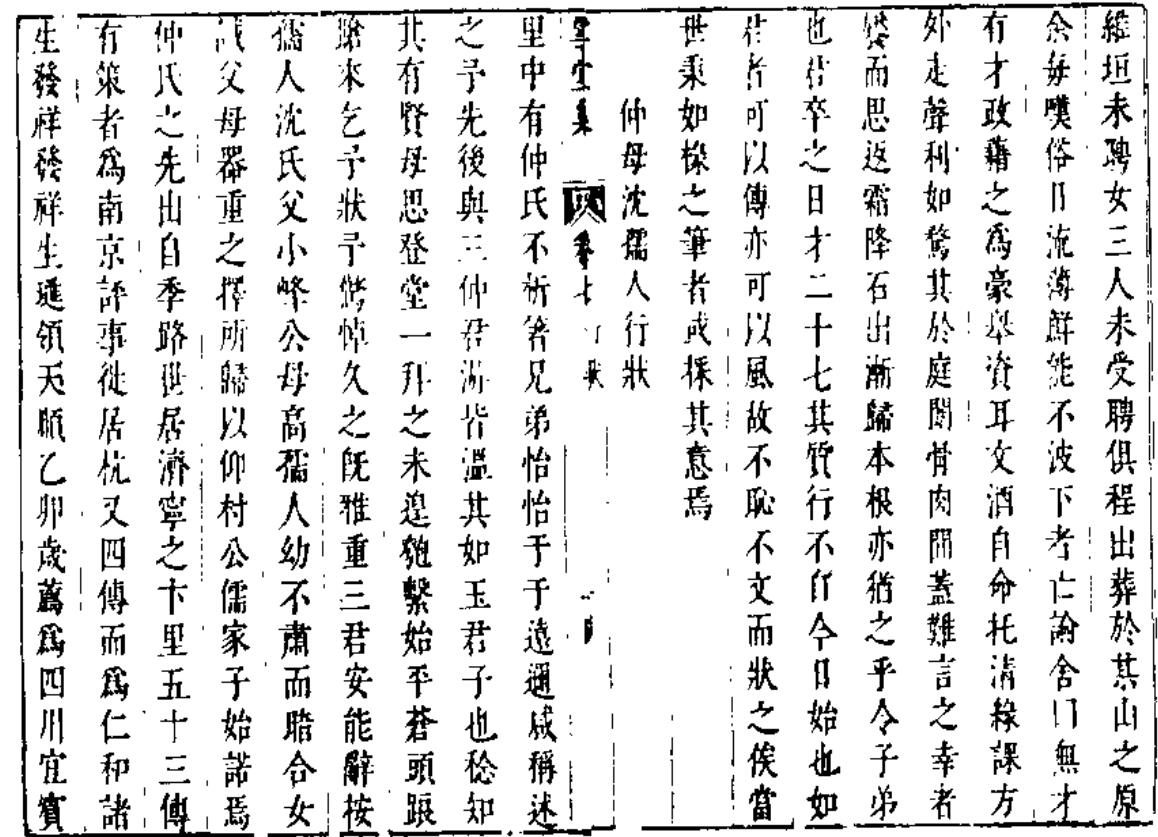 維垣未聘女三人未受聘俱程出葬於某山之原
余每嘆俗日流薄鮮能不波下者亡論舍口無才
有才政藉之為豪舉資耳文酒自命托清綠課方
外走聲利如騖其於庭闈骨肉間蓋難言之幸者
獘而思返霜降石出漸歸本根亦猶之乎令子弟
也君卒之日才二十七其質行不自今日始也如
君者可以傳亦可以風故不恥不文而狀之俟當
世秉如椽之筆者或採其意焉
仲母沈孺人行狀
堂集 卷七 行狀
里中有仲氏不析箸兄弟怡怡于于遠邇咸稱述
之予先後與三仲君游皆溫其如玉君子也稔知
其有賢母思登堂一拜之未遑匏繫始平蒼頭踉
蹌來乞予狀予愕悼久之旣雅重三君安能辭按
孺人沈氏父小峰公母高孺人幼不肅而暗合女
誡父母器重之擇所歸以仰村公儒家子始諾焉
仲氏之先出自季路世居濟寧之卞里五十三傳
有策者爲南京評事徙居杭又四傳而爲仁和諸
生發祥發祥生璡領天順乙卯歲薦爲四川宜賓